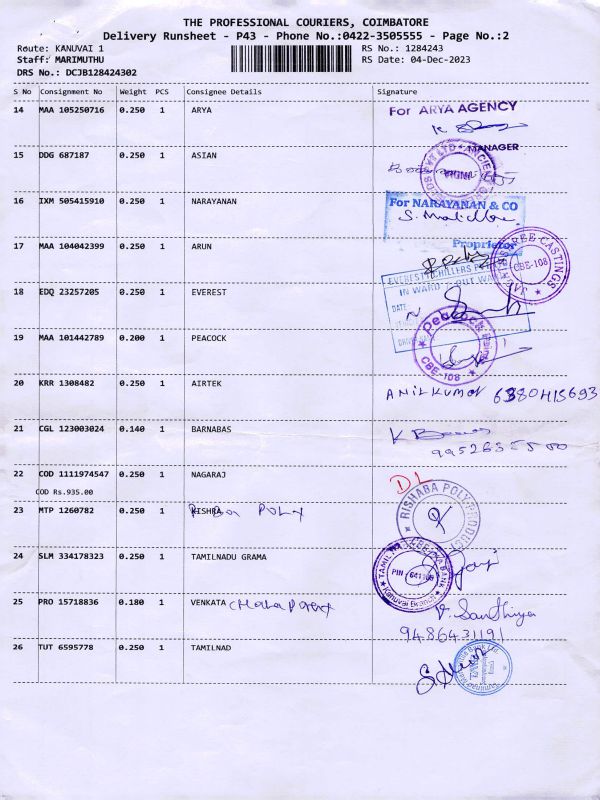 THE PROFESSIONAL COURIERS, COIMBATORE
Delivery Runsheet - P43 - Phone No.:0422-3505555 - Page No.:2
Route: KANUVAI 1 RS No.: 1284243
Staff: MARIMUTHU RS Date: 04-Dec-2023
DRS No.: DCJB128424302
S No Consignment No Weight PCS Consignee Details Signature
14 MAA 105250716 0.250 1 ARYA For ARYA AGENCY
MANAGER
15 DDG 687187 0.250 1 ASIAN
16 IXM 505415910 0.250 1 NARAYANAN For NARAYANAN & CO
Proprietor
17 MAA 104042399 0.250 1 ARUN CASTINGS CBE-108
18 EDQ 23257205 0.250 1 EVEREST
IN WARD / OUT WARD
DATE
19 MAA 101442789 0.200 1 PEACOCK Peacock CBE-108
20 KRR 1308482 0.250 1 AIRTEK ANILKUMAR
21 CGL 123003024 0.140 1 BARNABAS K
22 COD 1111974547 0.250 1 NAGARAJ DL
COD Rs.935.00
23 MTP 1260782 0.250 1 RISHRA RISHABA POLY PRODUCT
24 SLM 334178323 0.250 1 TAMILNADU GRAMA PIN Kanuvai Branch
25 PRO 15718836 0.180 1 VENKATA V. Santhiya
9486431191
26 TUT 6595778 0.250 1 TAMILNAD